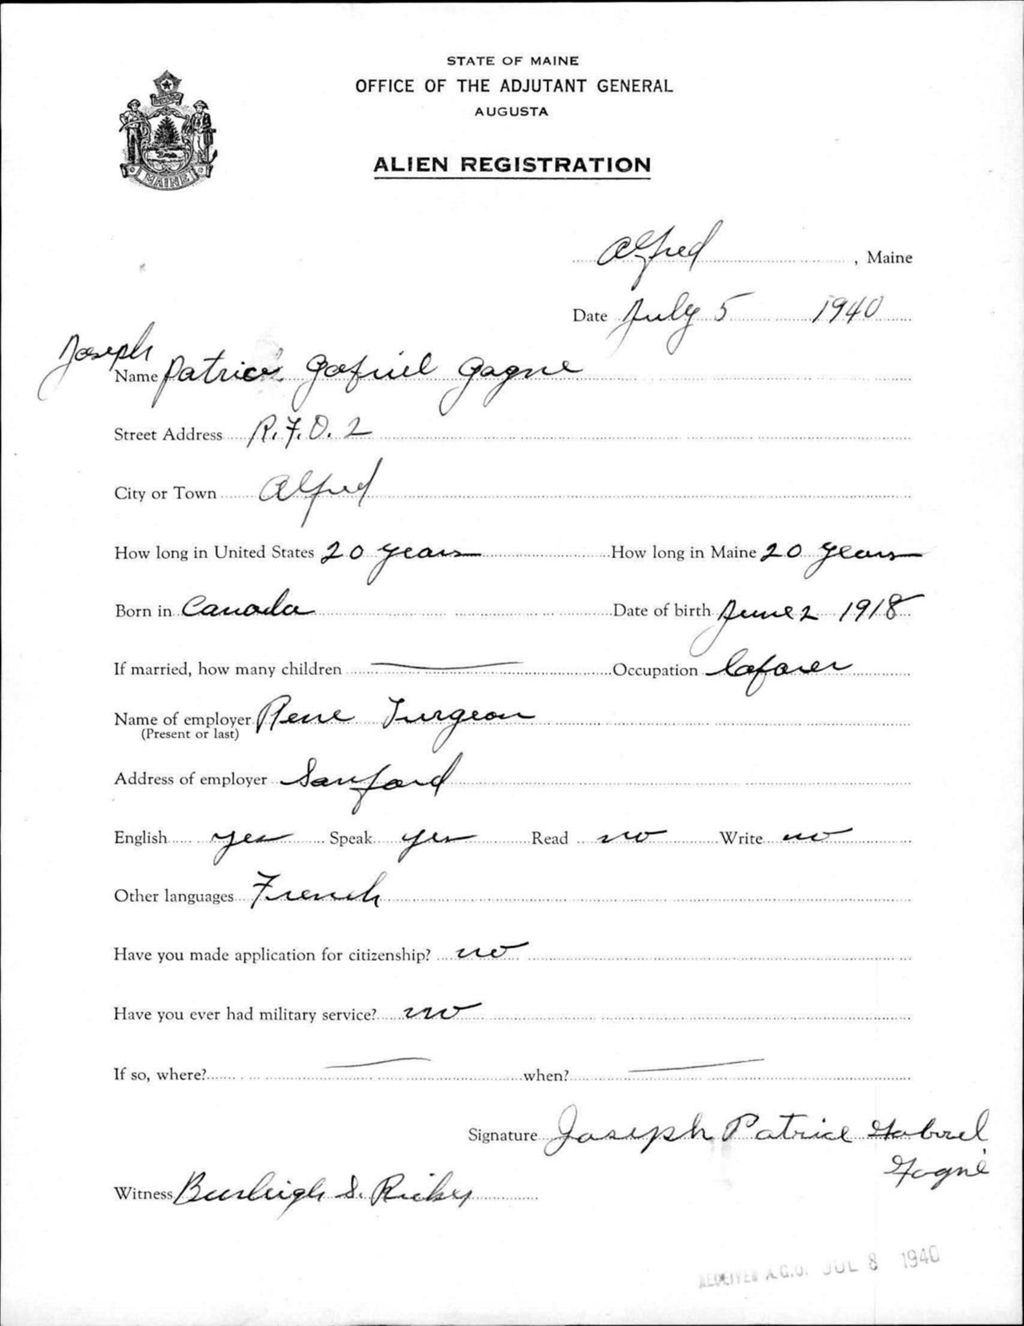 STATE OF MAINE
OFFICE OF THE ADJUTANT GENERAL
AUGUSTA
ALIEN REGISTRATION
MAINE
Alfred, Maine
Date July 5 1940
Joseph
Name Patrice Gabriel Gagne
Street Address R.F.D. 2
City or Town Alfred
How long in United States 20 years How long in Maine 20 years
Born in Canada Date of birth June 2 1918
If married, how many children Occupation Laborer
Name of employer Rene Turgeon
(Present or last)
Address of employer Sanford
English yes Speak yes Read no Write no
Other languages French
Have you made application for citizenship? no
Have you ever had military service? no
If so, where? when?
Signature Joseph Patrice Gabriel
Gagné
Witness Burleigh S.
RECEIVED A.G.O. JUL 8 1940